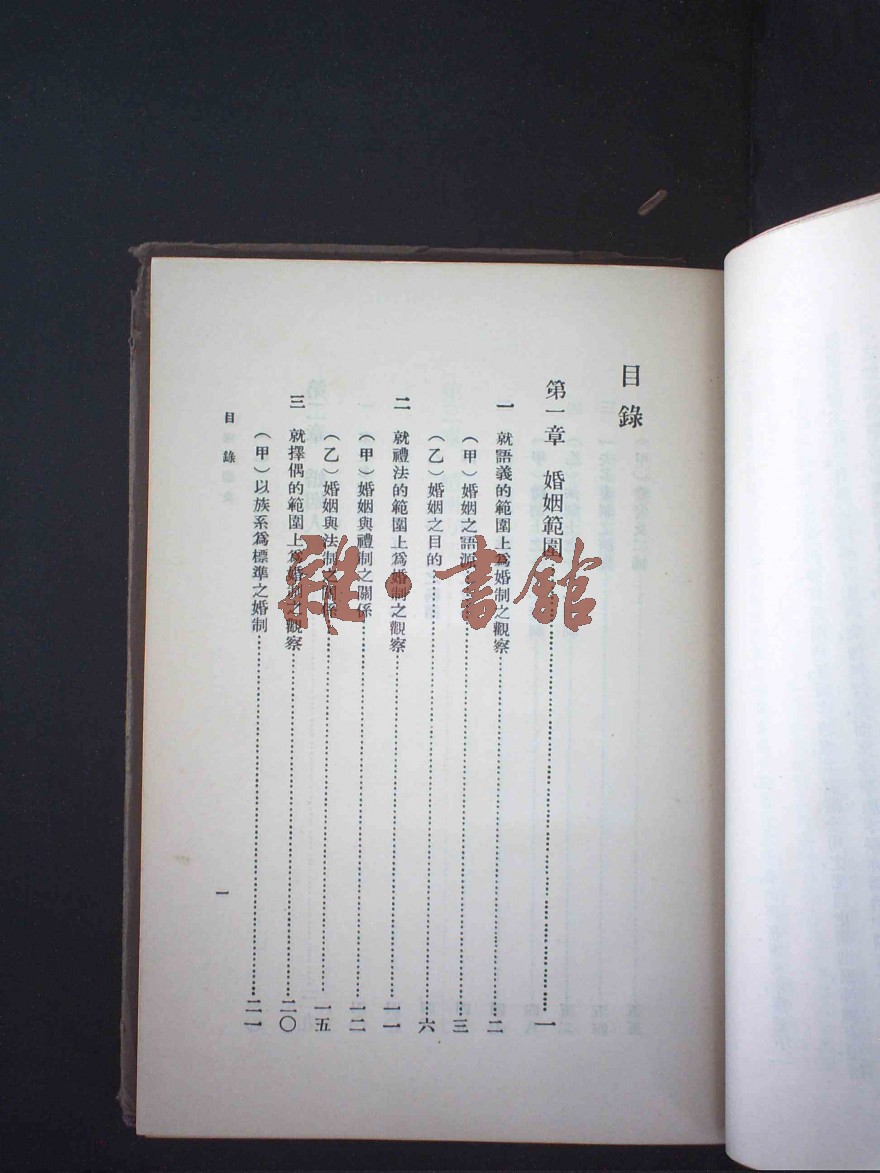 目錄
第一章　婚姻範圍……一
一　就語義的範圍上爲婚制之觀察……二
（甲）婚姻之語源……三
（乙）婚姻之目的……六
二　就禮法的範圍上爲婚制之觀察……一一
（甲）婚姻與禮制之關係……一二
（乙）婚姻與法制之關係……一五
三　就擇偶的範圍上爲婚制之觀察……二〇
（甲）以族系爲標準之婚制……二一
目錄
一
雜·書館